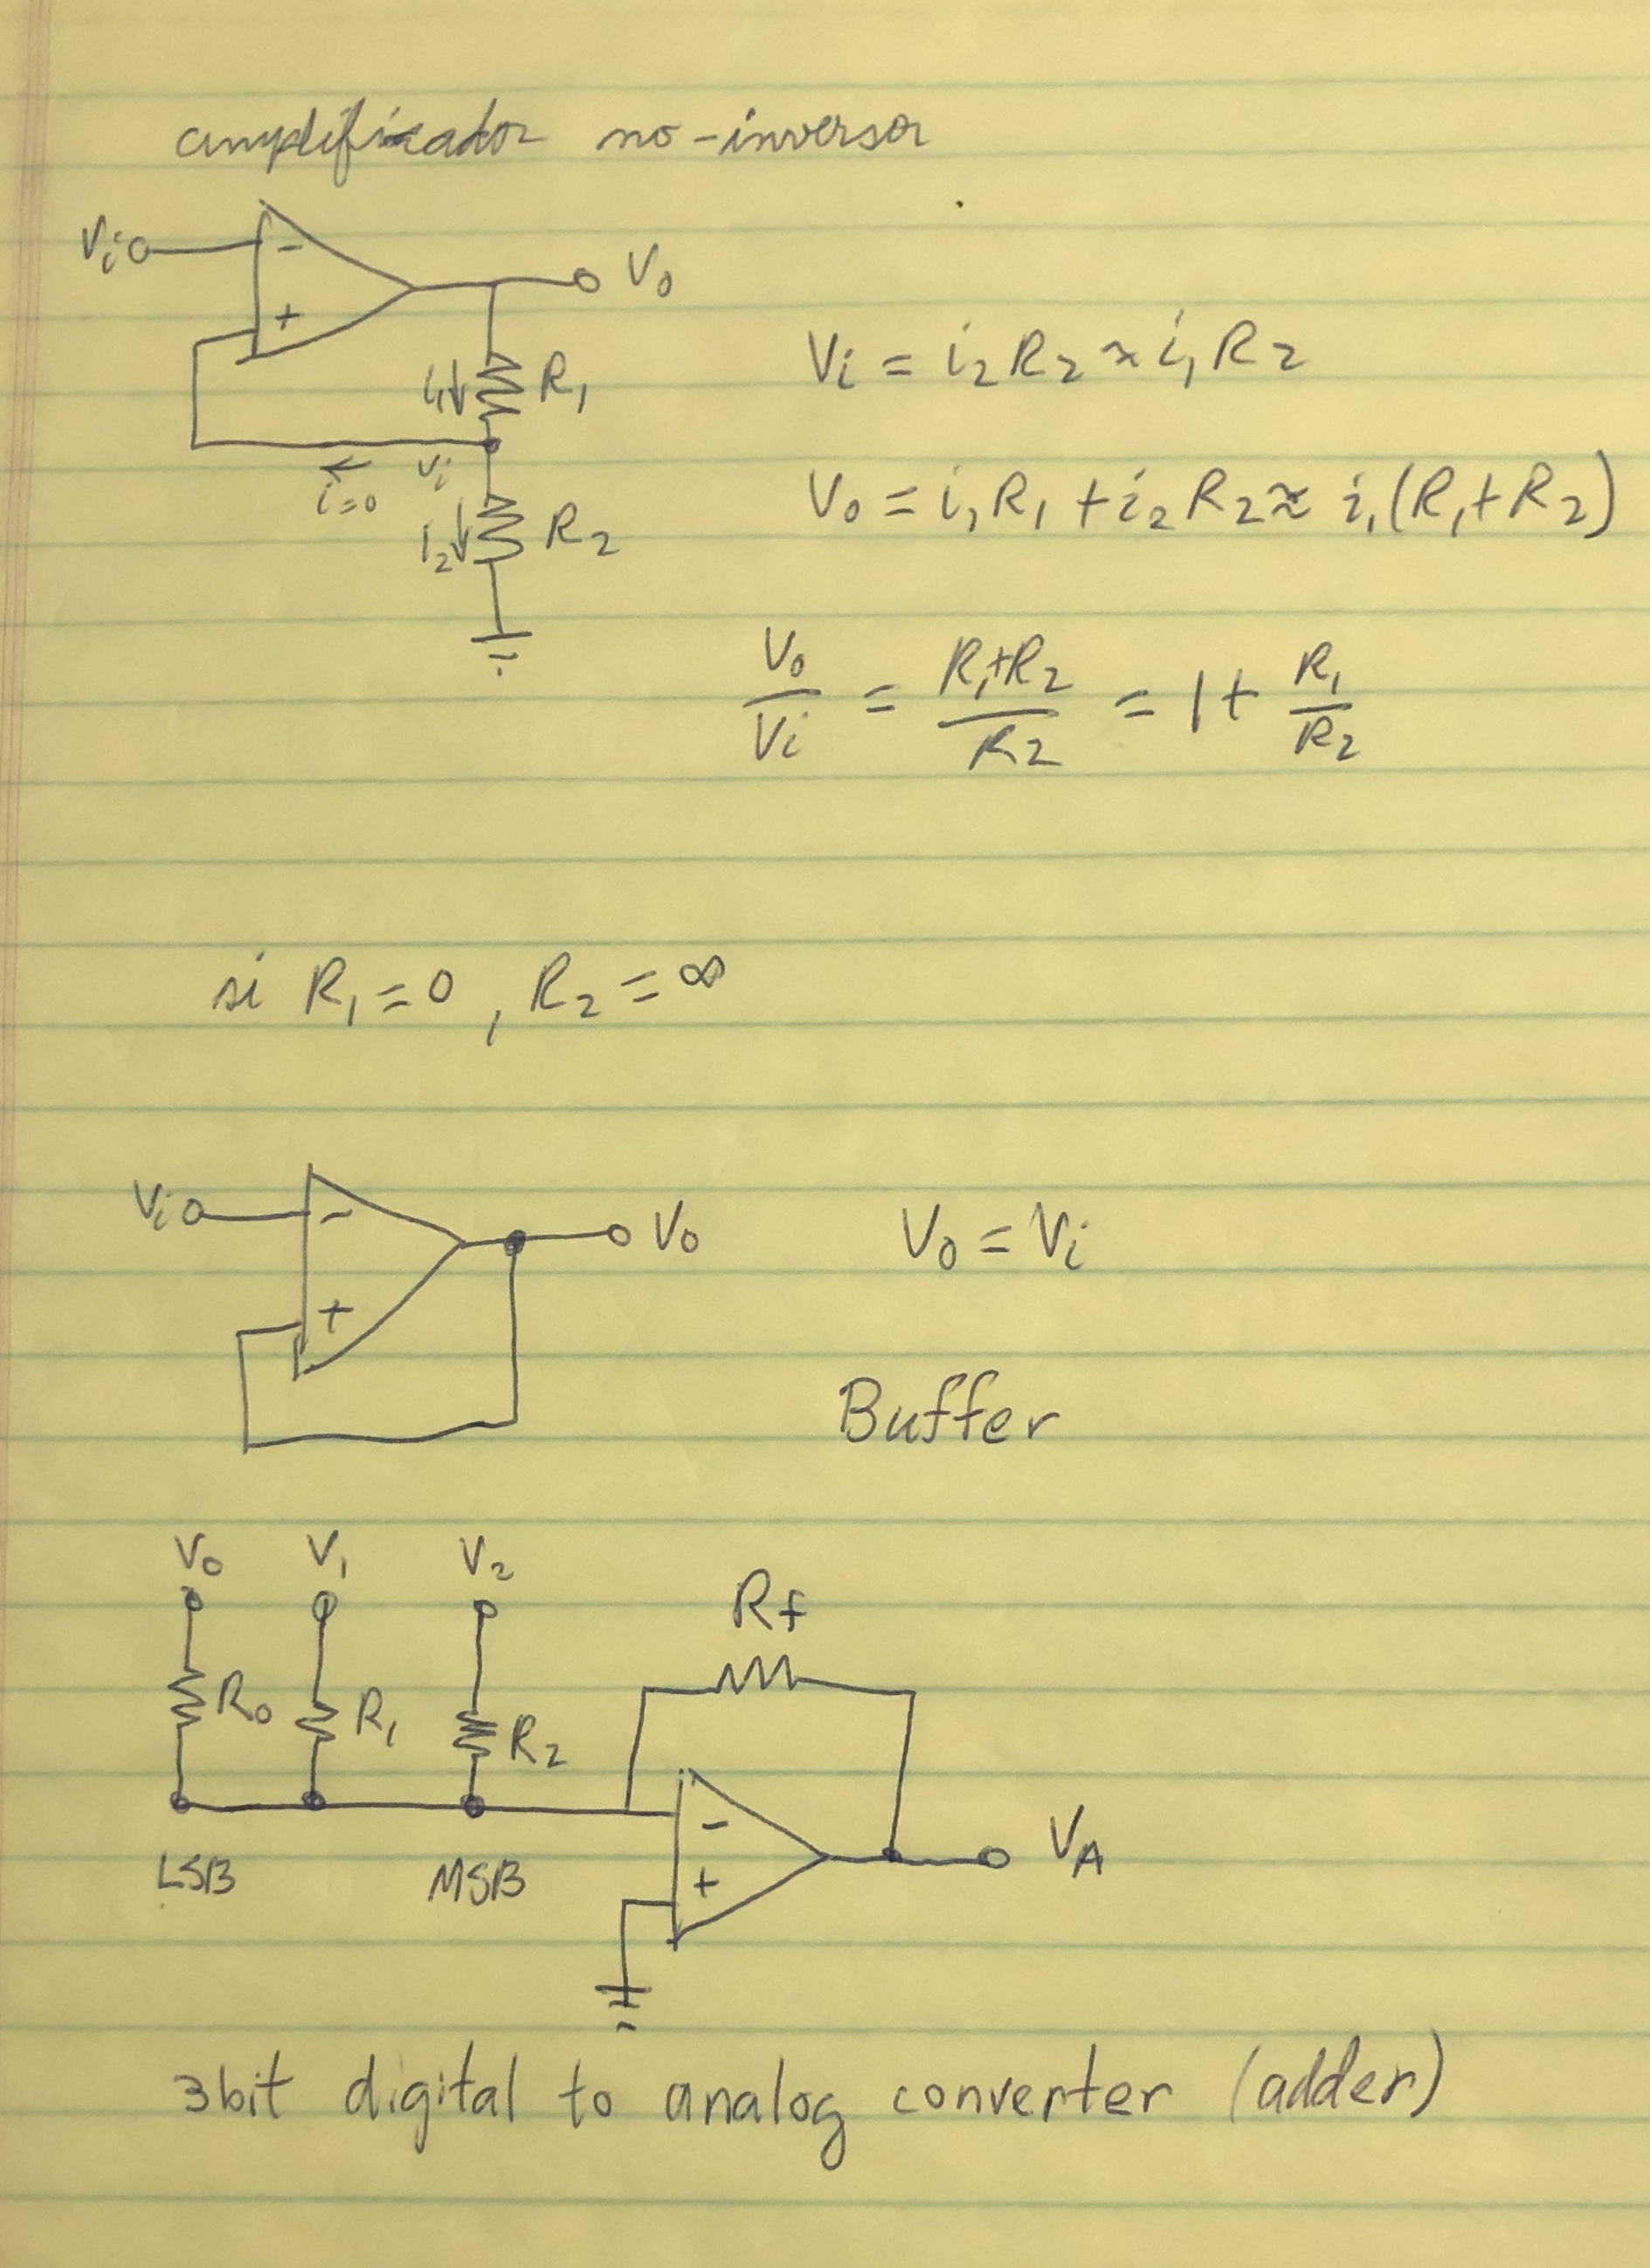 amplificador no-inversor
Vi - V0
+
i1 R1
Vi = i2 R2 ≈ i1 R2
i=0 vi
i2 R2
V0 = i1 R1 + i2 R2 ≈ i1 (R1 + R2)
V0/Vi = (R1+R2)/R2 = 1 + R1/R2
si R1 = 0, R2 = ∞
Vi - V0
+
V0 = Vi
Buffer
V0 V1 V2
Rf
R0 R1 R2
-
+
VA
LSB MSB
3bit digital to analog converter (adder)